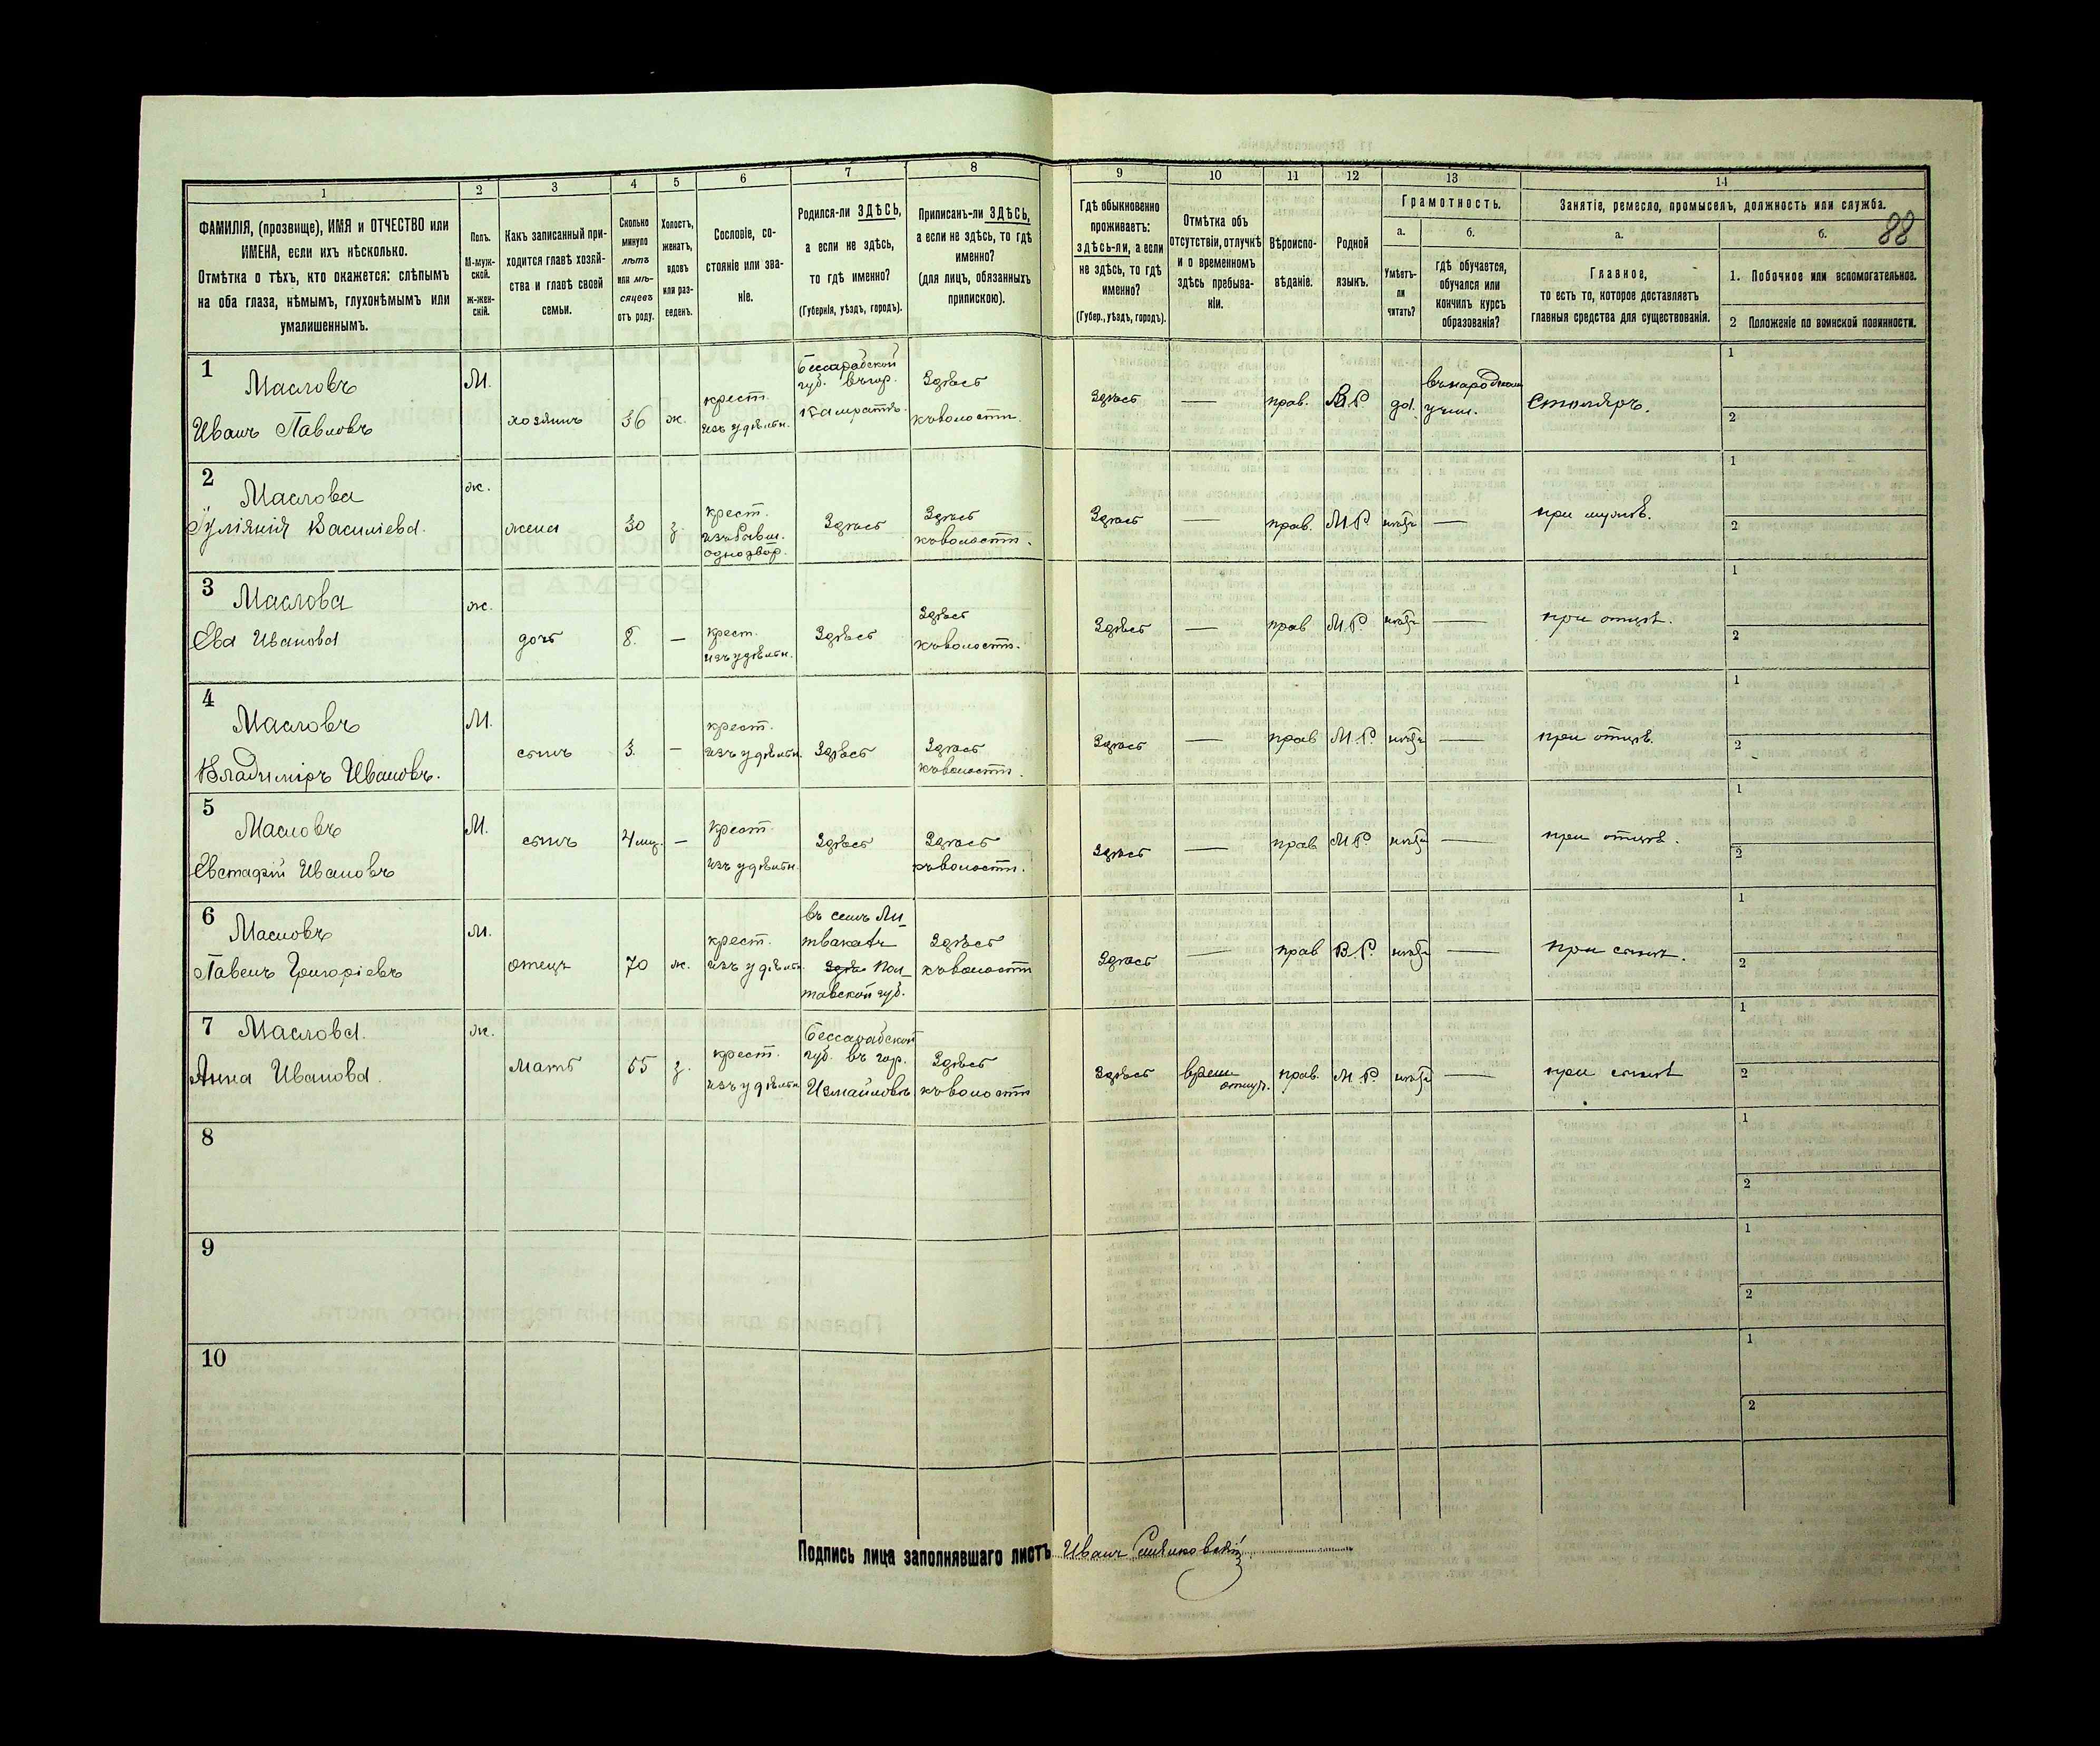 1 2 3 4 5 6 7 8 9 10 11 12 13 14
ФАМИЛІЯ, (прозвище), ИМЯ и ОТЧЕСТВО или
ИМЕНА, если ихъ нѣсколько.
Отмѣтка о тѣхъ, кто окажется: слѣпымъ
на оба глаза, нѣмымъ, глухонѣмымъ или
умалишеннымъ.
Полъ.
М-муж-
ской.
Ж-жен-
скій.
Какъ записанный при-
ходится главѣ хозяй-
ства и главѣ своей
семьи.
Сколько
минуло
лѣтъ
или мѣ-
сяцевъ
отъ роду.
Холостъ,
женатъ,
вдовъ
или раз-
веденъ.
Сословіе, со-
стояніе или зва-
ніе.
Родился-ли ЗДѢСЬ,
а если не здѣсь,
то гдѣ именно?
(Губернія, уѣздъ, городъ).
Приписанъ-ли ЗДѢСЬ,
а если не здѣсь, то гдѣ
именно?
(для лицъ, обязанныхъ
припискою).
Гдѣ обыкновенно
проживаетъ:
здѣсь-ли, а если
не здѣсь, то гдѣ
именно?
(Губер., уѣздъ, городъ).
Отмѣтка объ
отсутствіи, отлучкѣ
и о временномъ
здѣсь пребыва-
ніи.
Вѣроиспо-
вѣданіе.
Родной
языкъ.
Грамотность.
а.
Умѣетъ-
ли
читать?
б.
гдѣ обучается,
обучался или
кончилъ курсъ
образованія?
Занятіе, ремесло, промыселъ, должность или служба.
88
а.
Главное,
то есть то, которое доставляетъ
главныя средства для существованія.
б.
1. Побочное или вспомогательное.
2 Положеніе по воинской повинности.
1
Масловъ
Иванъ Павловъ
М.
хозяинъ
36
ж.
крест.
изъ удѣльн.
Бессарабской
губ. въ гор.
Здѣсь
къ волости.
Здѣсь
—
прав.
да.
въ народном
учил.
Столяръ.
1
2
2
Маслова
Василіева.
ж.
жена
30
з.
крест.
изъ бывш.
однодвор.
Здѣсь
Здѣсь
къ волости.
Здѣсь
—
прав.
М.Р.
нѣтъ
—
при мужѣ.
1
2
3
Маслова
Ева Иванова
ж.
дочь
8.
—
крест.
изъ удѣльн.
Здѣсь
Здѣсь
къ волости.
Здѣсь
—
прав
М.Р.
нѣтъ
—
при отцѣ.
1
2
4
Масловъ
Владиміръ Ивановъ.
М.
сынъ
3.
—
крест.
изъ удѣльн.
Здѣсь
Здѣсь
къ волости.
Здѣсь
—
прав
М.Р.
нѣтъ
—
при отцѣ.
1
2
5
Масловъ
Евстафій Ивановъ
М.
сынъ
4 мц.
—
крест.
изъ удѣльн.
Здѣсь
Здѣсь
къ волости.
Здѣсь
—
прав
М.Р.
нѣтъ
—
при отцѣ.
1
2
6
Масловъ
Павелъ Григоріевъ
М.
отецъ
70
ж.
крест.
изъ удѣльн.
въ селѣ Ли-
Пол-
тавской губ.
Здѣсь
къ волости
Здѣсь
—
прав
В.Р.
нѣтъ
—
при сынѣ.
1
2
7
Маслова.
Анна Иванова.
ж.
мать
55
з.
крест.
изъ удѣльн
Бессарабской
губ. въ гор.
Измаиловѣ
Здѣсь
къ волости
Здѣсь
врем.
отлуч.
прав.
М.Р.
нѣтъ
—
при сынѣ
1
2
8
1
2
9
1
2
10
1
2
Подпись лица заполнявшаго листъ Иванъ